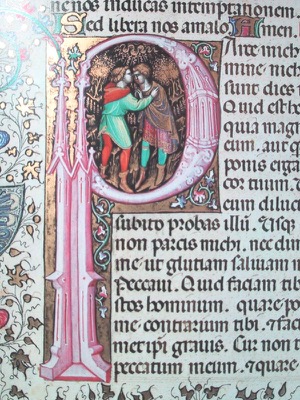 ne nos inducas intemptationem.
Sed libera nos a malo Amen.
P Arce mich
mine mich
sunt dies
Quid est h
quia mag
eum. aut q
ponis erga
cor tuum.
eum diluc
subito probas illū. Usq
non parcis michi. nec
me ut glutiam salivam
Peccavi. Quid faciam tibi
stos hominum. quare po
me contrarium tibi. et fac
met ipi gravis. Cur non t
peccatum meum. et quare